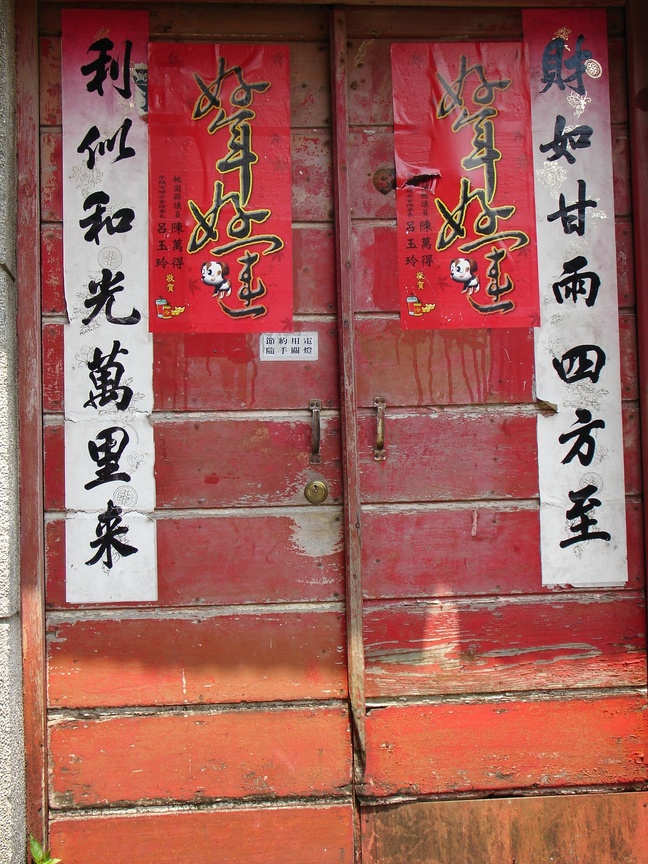 財如甘雨四方至
好年好運
桃園縣議員 陳萬得
呂玉玲
敬賀
好年好運
桃園縣議員 陳萬得
呂玉玲
敬賀
利似和光萬里来
節約用電
隨手關燈